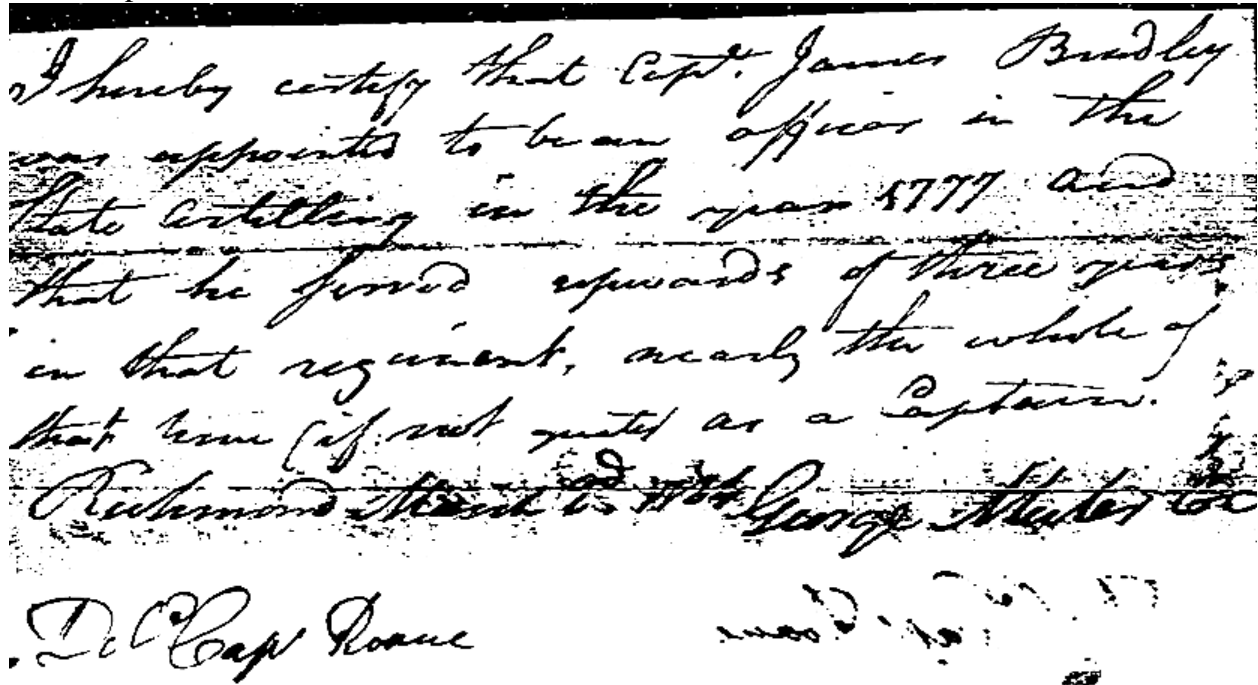 I hereby certify that Capt. James Bradley
was appointed to be an officer in the
State Artillery in the year 1777 and
that he served upwards of three years
in that regiment, nearly the whole of
that time (if not quite) as a Captain.
Richmond March 1784 George Muter Col
Capt Roane